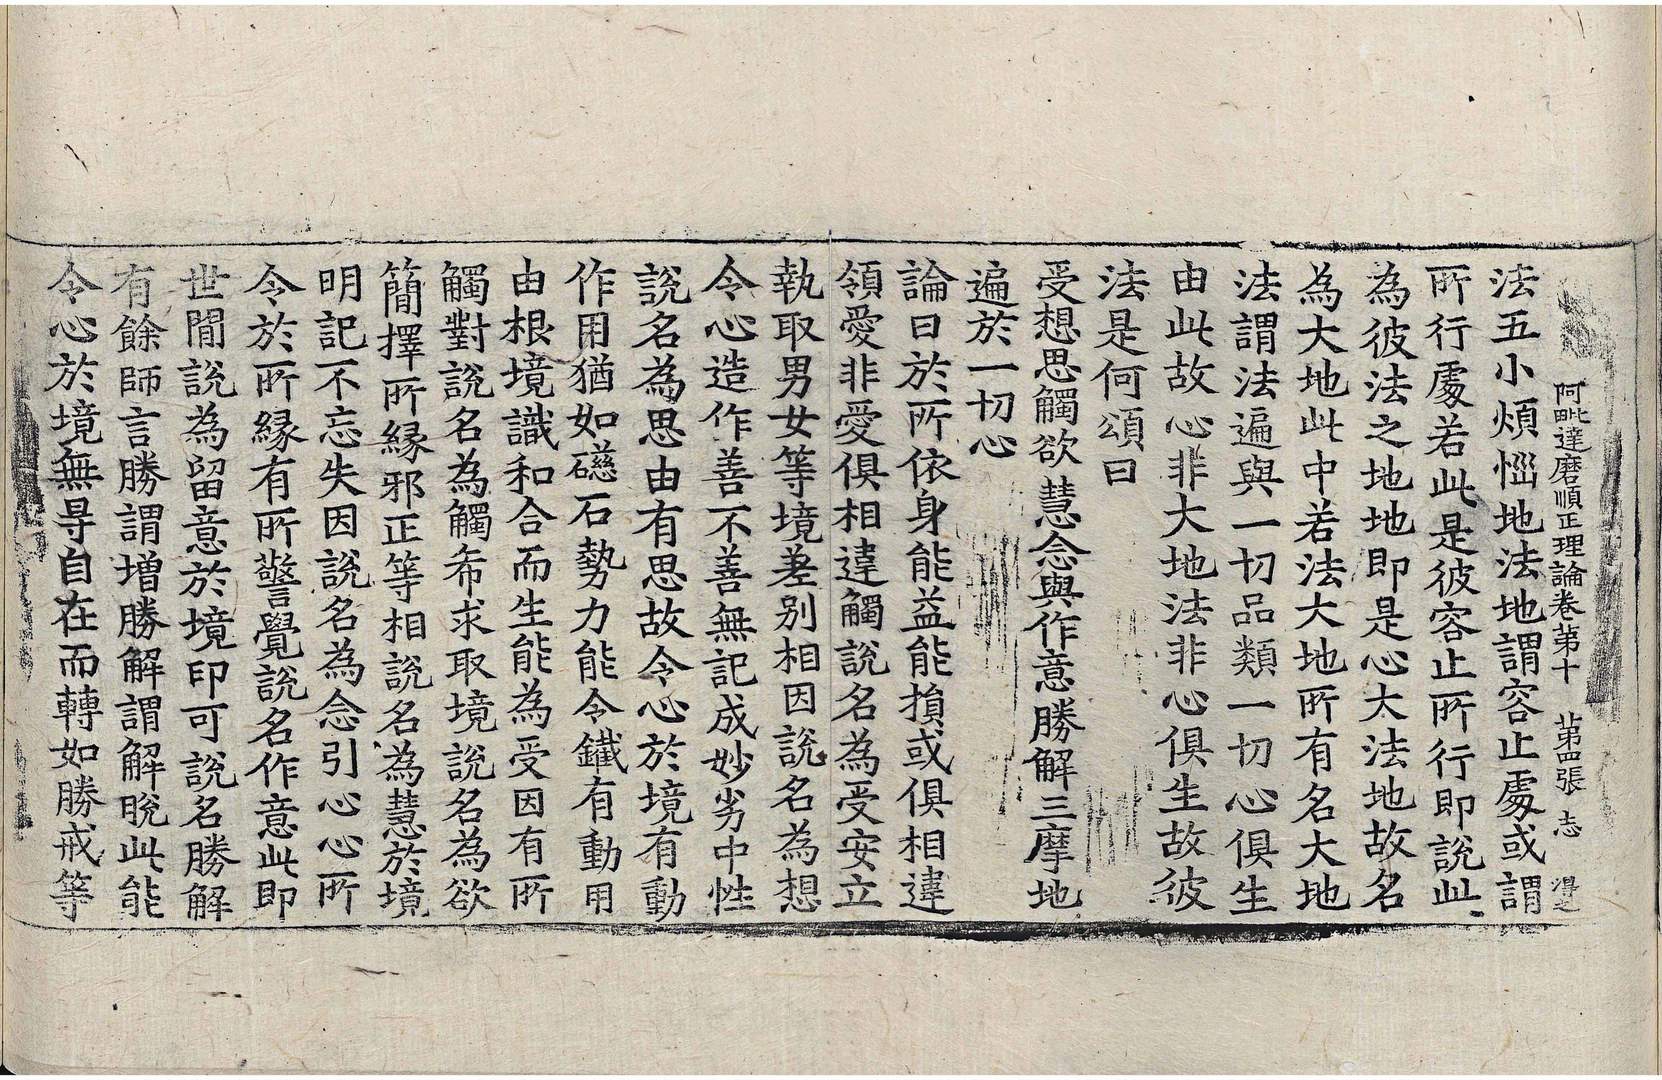 阿毗達磨順正理論卷第十　第四張　志
法五小煩惱地法地謂容止處或謂
所行處若此是彼容止所行即說此
為彼法之地地即是心大法地故名
為大地此中若法大地所有名大地
法謂法遍與一切品類一切心俱生
由此故心非大地法非心俱生故彼
法是何頌曰
受想思觸欲　慧念與作意　勝解三摩地
遍於一切心
論曰於所依身能益能損或俱相違
領愛非愛俱相違觸說名為受安立
執取男女等境差別相因說名為想
令心造作善不善無記成妙劣中性
說名為思由有思故令心於境有動
作用猶如磁石勢力能令鐵有動用
由根境識和合而生能為受因有所
觸對說名為觸希求取境說名為欲
簡擇所緣邪正等相說名為慧於境
明記不忘失因說名為念引心心所
令於所緣有所警覺說名作意此即
世間說為留意於境印可說名勝解
有餘師言勝謂增勝解謂解脫此能
令心於境無㝵自在而轉如勝戒等